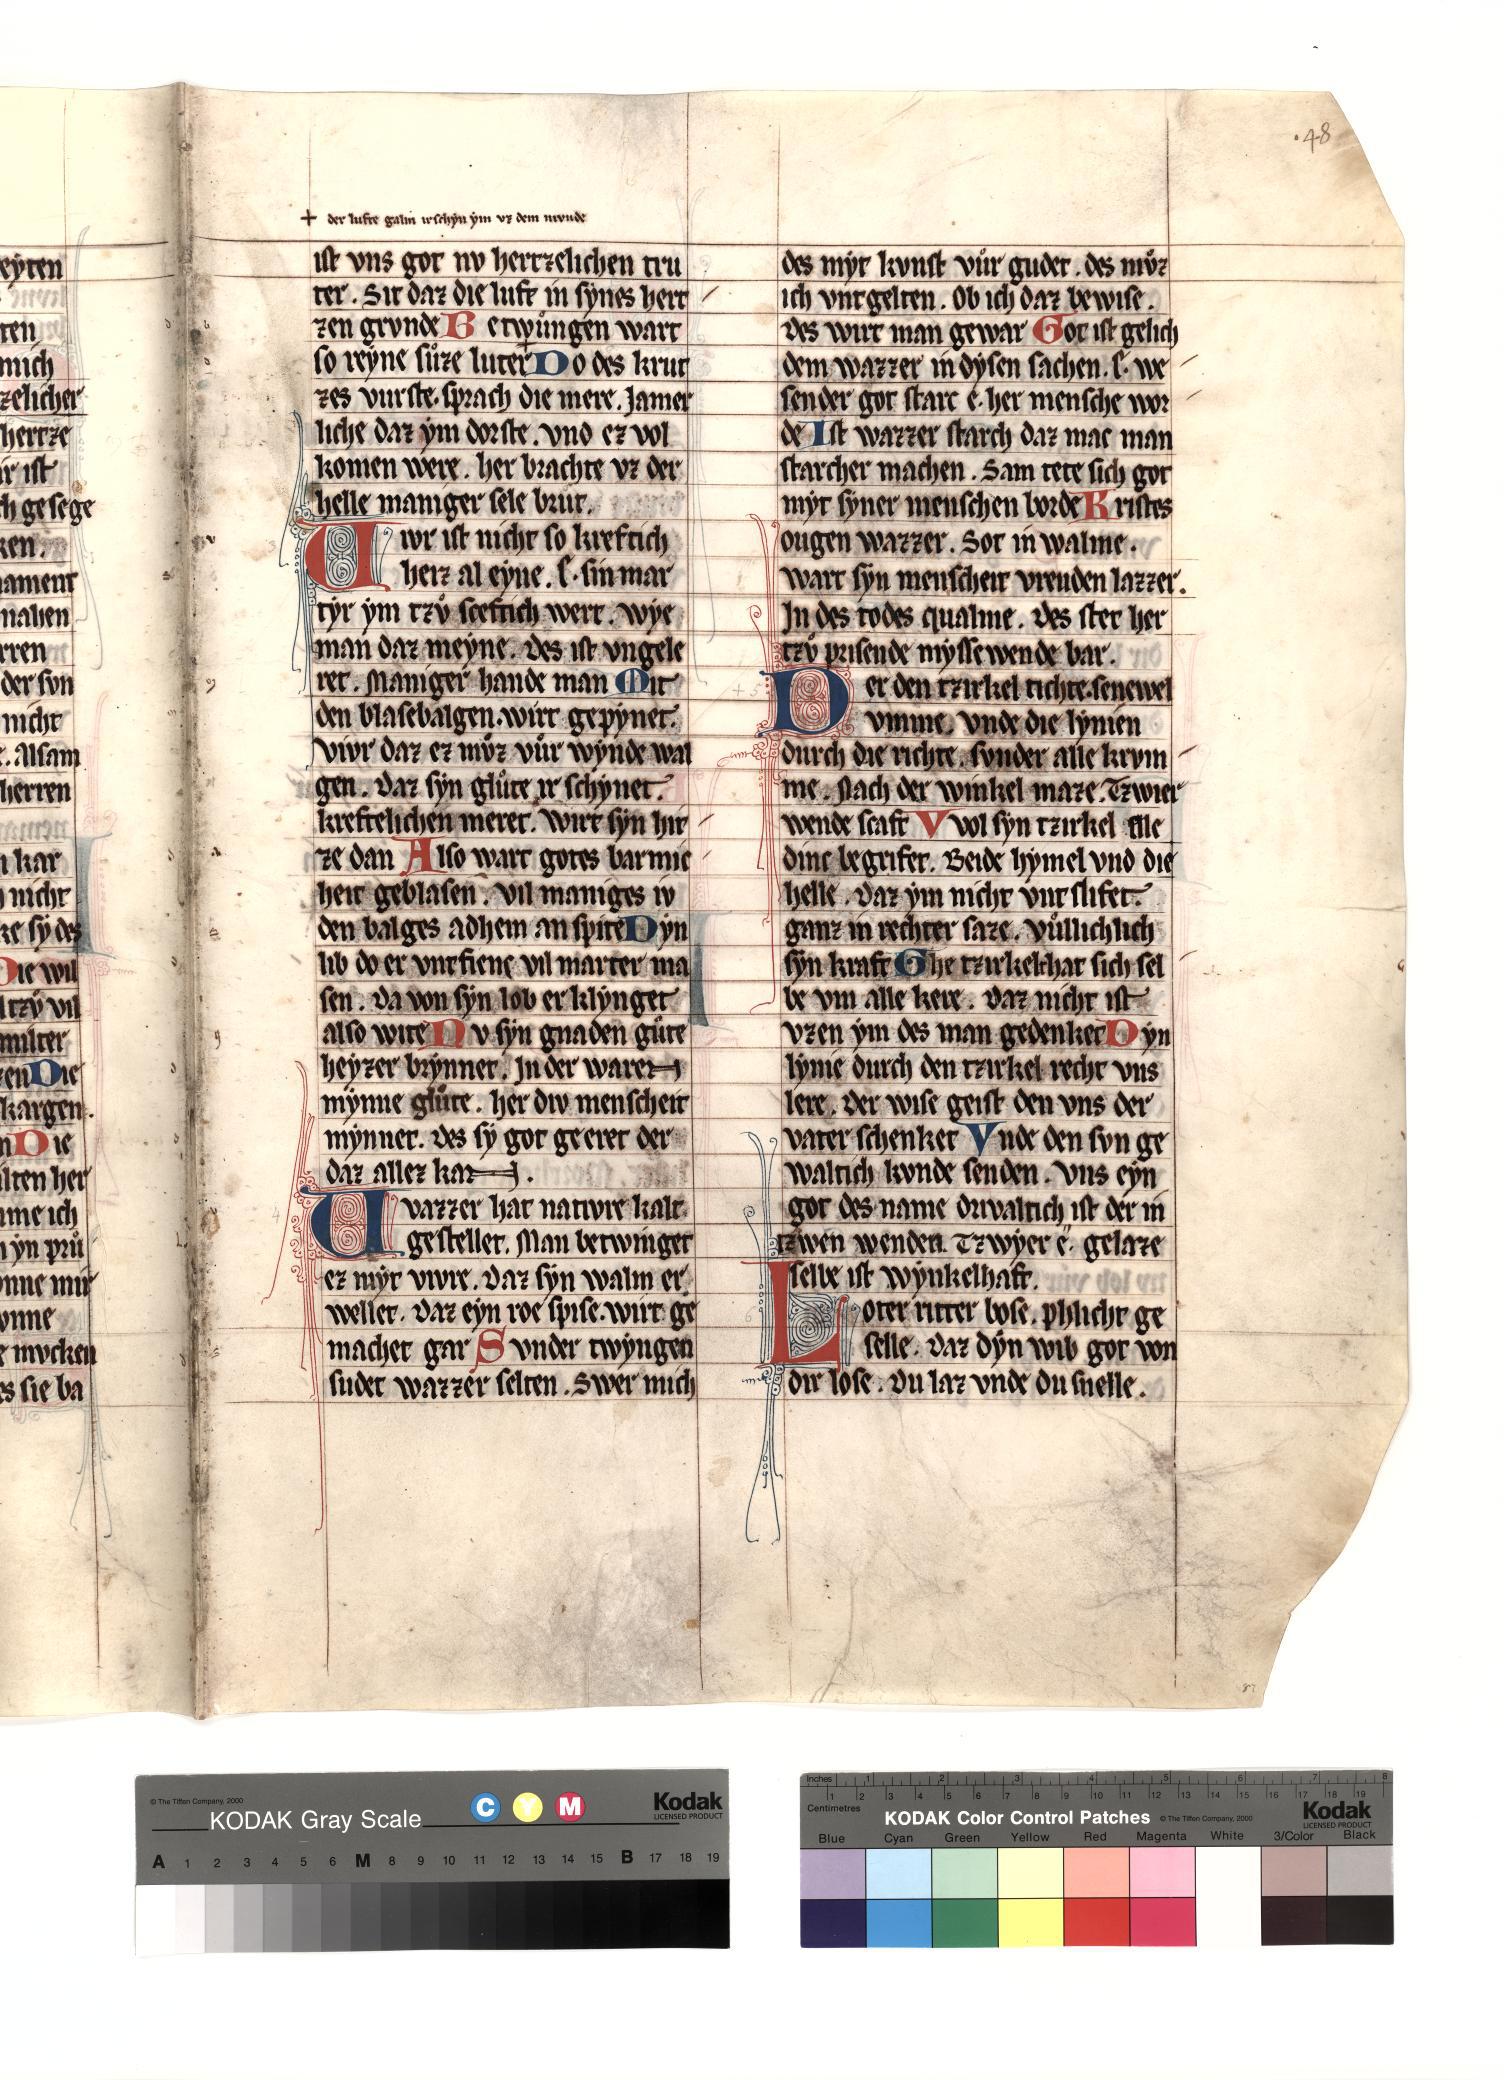 ·48
+ der lufte galm irschyn ym vz dem mvnde
eyten
ten
mich
zelicher
hertze
ir ist
ch gesege
ken.
nament
nahen
rren
der svn
nicht
. Alsam
herren
n kar
nicht
ze sy des
Die wil
l tzv vil
milter
zen Die
kargen.
n Die
lten her
me ich
n yn prů
onne mir
onne
e mvcken
es sie ba
ist vns got nv hertzelichen tru
ter. Sit daz die luft in synes hert
zen grvnde Betwůngen wart
so reyne sůze luter Do des krut
zes vurste. sprach die mere. Jamer
liche daz ym dorste. vnd ez vol
komen were. her brachte vz der
helle maniger sele brut.
Vivr ist nicht so kreftich
herz al eyne. s. sin mar
tyr ym tzů sceftich wert. wye
man daz meyne. Des ist vngele
ret. Maniger hande man Mit
den blasebalgen. wirt gepynet.
vivr daz ez můz vůr wynde wal
gen. Daz syn glůte irschynet.
kreftelichen meret. Wirt syn hit
ze dan Also wart gotes barmic
heit geblasen. vil maniges iv
den balges adhem an spite Dyn
lib do er vntfienc vil marter ma
sen. Da von syn lob er klynget
also wite Nv syn gnaden gůte
heyzer brynnet. In der waren
mynne glůte. her div menscheit
mynnet. Des sy got geeret der
daz allez kan.
Wazzer hat natvre kalt
gestellet. Man betwinget
ez myt vivre. Daz syn walm er
wellet. Daz eyn roe spise. wirt ge
machet gar Svnder twyngen
sudet wazzer selten. Swer mich
des myt kvnst vůr gudet. des můz
ich vntgelten. Ob ich daz bewise.
Des wirt man gewar Got ist gelich
dem wazzer in dysen sachen. s. we
sender got starc e. her mensche wor
de Ist wazzer starch daz mac man
starcher machen. Sam tete sich got
myt syner menschen borde Kristes
ougen wazzer. Sot in walme.
wart syn menscheit vreuden lazzer.
In des todes qualme. Des stet her
tzů prisende myssewende bar.
Der den tzirkel tichte. senewel
vmme. vnde die lynien
durch die richte. svnder alle krvm
me. Nach der winkel maze. Tzwier
wende scaft Vvol syn tzirkel alle
dinc begrifet. Beide hymel vnd die
helle. Daz ym nicht vnt slifet.
ganz in rechter saze. vůllichlich
syn kraft Ghe tzirkelt hat sich sel
be vm alle kere. Daz nicht ist
vzen ym des man gedenket Dyn
lynie durch den tzirkel recht vns
lere. Der wise geist den vns der
vater schenket Vnde den svn ge
waltich kvnde senden. vns eyn
got des name drivaltich ist der in
tzwen wenden. Tzwyer e. gelaze
selbe ist wynkelhaft.
Loter ritter bose. phlicht ge
selle. Daz dyn wib got von
dir lose. Du laz vnde du snelle.
© The Tiffen Company, 2000
KODAK Gray Scale
C Y M
Kodak
LICENSED PRODUCT
A 1 2 3 4 5 6 M 8 9 10 11 12 13 14 15 B 17 18 19
Inches 1 2 3 4 5 6 7 8
Centimetres 1 2 3 4 5 6 7 8 9 10 11 12 13 14 15 16 17 18 19
KODAK Color Control Patches
© The Tiffen Company, 2000
Kodak
LICENSED PRODUCT
Blue Cyan Green Yellow Red Magenta White 3/Color Black